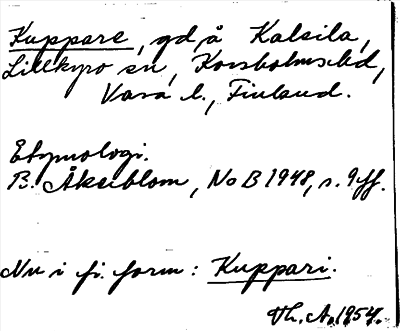 Kuppare, gd å Kalsila,
Lillkyro sn, Korsholms hd,
Vasa l., Finland.
Etymologi.
B. Åkerblom, NoB 1948, s. 9 ff.
Nu i fi. form: Kuppari.
Th. A. 1954.